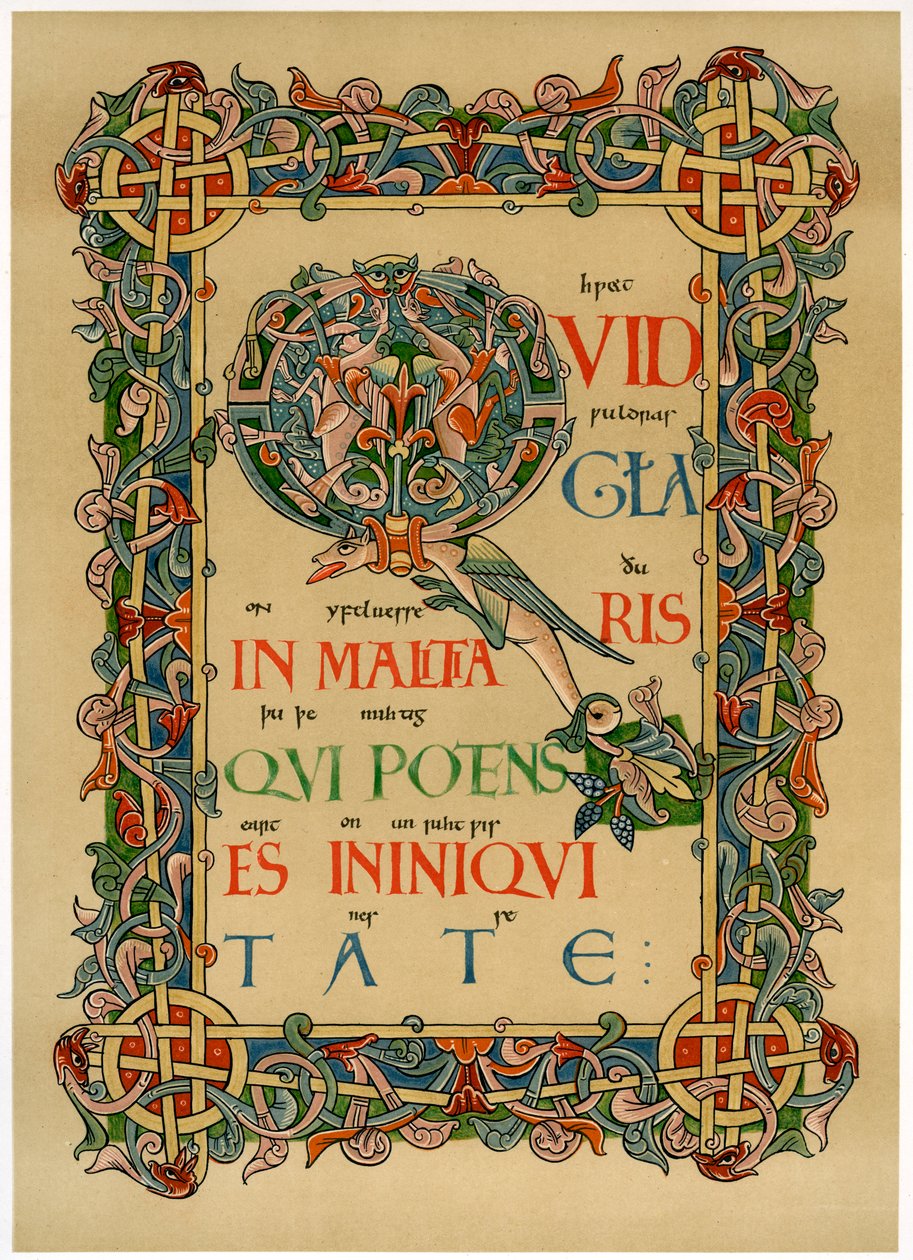 hƿæt
QVID
ƿuldras
GŁA
ðu
RIS
on yfelnesse
IN MALITIA
þu þe mihtig
QVI POTENS
eart on un riht ƿis
ES IN INIQVI
nes se
T A T E :